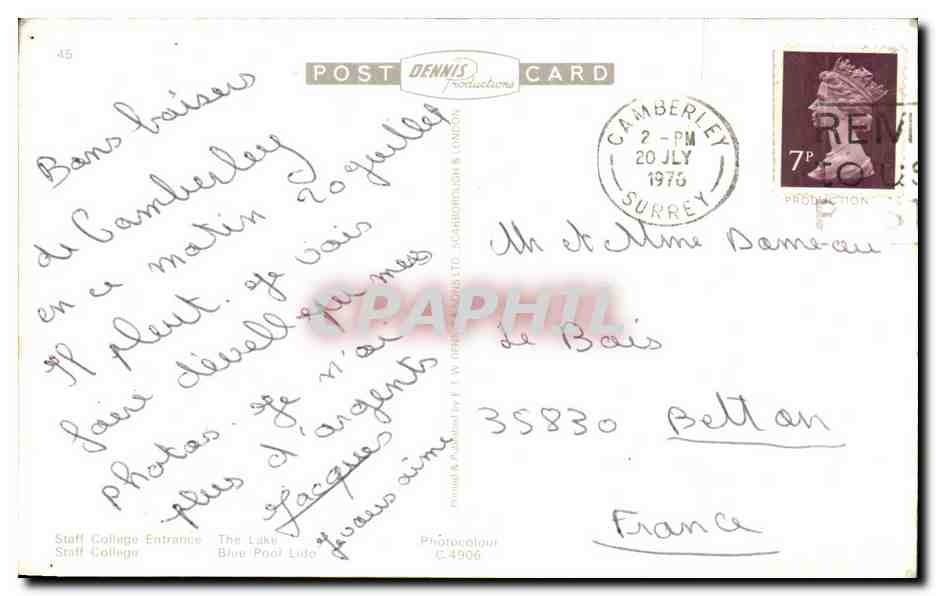 45
POST DENNIS Productions CARD
CAMBERLEY
2 - PM
20 JLY
1976
SURREY
REM
to us
7P
PRODUCTION
Bons baisers
de Camberley
en ce matin 20 juillet
Il pleut. Je vais
faire dévell mes
photos. Je n'ai
plus d'argents
Jacques
Je vous aime
Mr et Mme Dameau
Le Bois
35830 Betton
France
Printed & Published by E.T.W. DENNIS & SONS LTD., SCARBOROUGH & LONDON
CPAPHIL
Staff College Entrance The Lake
Staff College Blue Pool Lido
Photocolour
C.4906